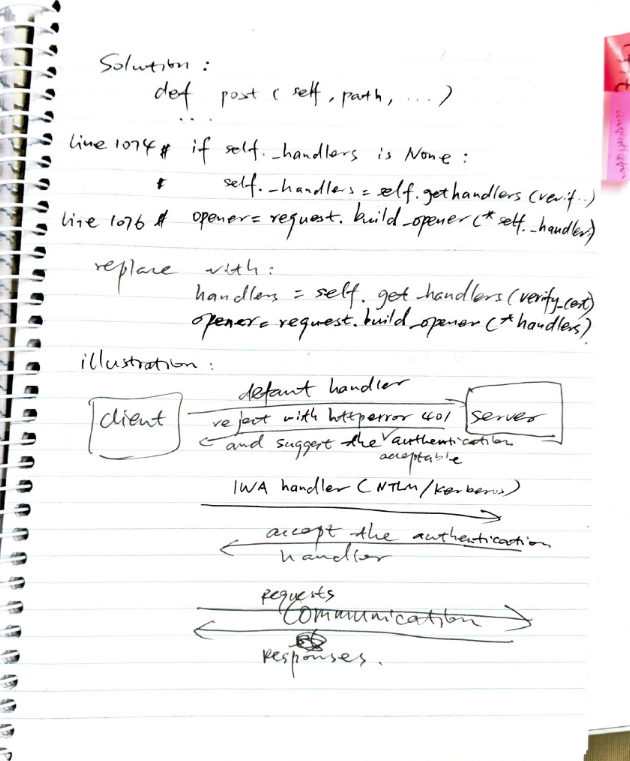 Solution :
def post ( self, path, ... )
...
line 1074 # if self._handlers is None :
# self._handlers = self.gethandlers (verif..)
line 1076 # opener = request.build_opener (*self._handler)
replace with :
handlers = self.get_handlers (verify_cert)
opener = request.build_opener (*handlers)
illustration :
defaut handler
client
reject with httperror 401
server
and suggest the authentication
acceptable
IWA handler (NTLM/Kerberos)
accept the authentication
handler
requests
Communication
responses.